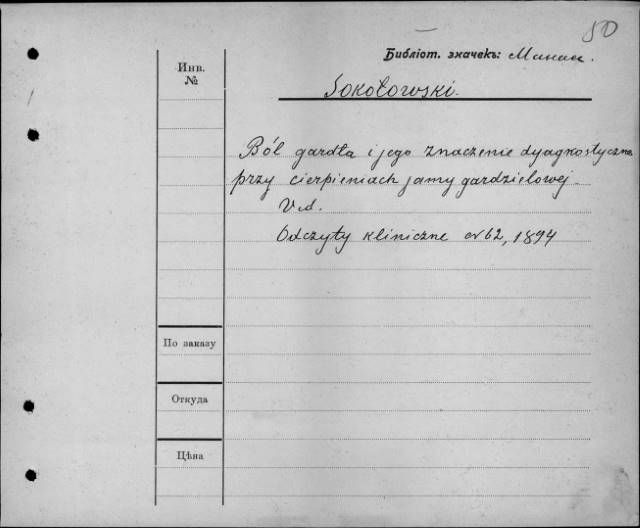 50
Библіот. значекъ:
Инв.
№
Sokołowski.
Ból gardła i jego znaczenie dyagnostyczne
przy cierpieniach jamy gardzielowej.
V.d.
Odczyty kliniczne nr 62, 1894
По заказу
Откуда
Цѣна